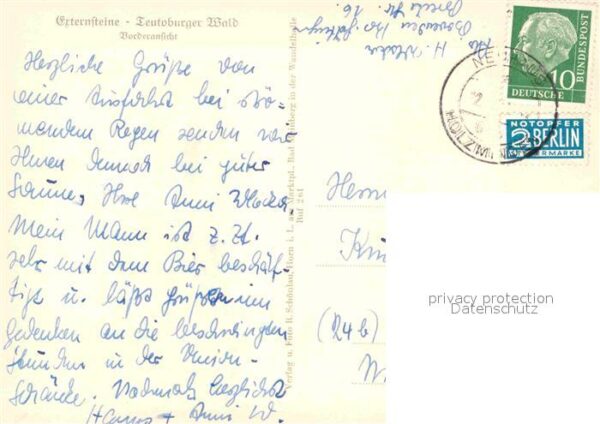 Externsteine - Teutoburger Wald
Vorderansicht
Herzliche Grüße von
einer Ausfahrt bei strö-
mendem Regen senden wir
Ihnen dennoch bei guter
Laune, Ihre Anni
Mein Mann ist z. Zt.
sehr mit dem Bier beschäf-
tigt u. läßt grüßen im
Gedenken an die beschwingten
Stunden in der Union-
Schänke. Nochmals herzlichst
Hans + Anni W.
Verlag u. Foto R. Schönlau, Horn i. L. am Marktpl., Bad Meinberg in der Wandelhalle
Ruf 261
H.
Breite Str. 16
Herrn
(24b)
W
10
DEUTSCHE
BUNDESPOST
NOTOPFER
2 BERLIN
STEUERMARKE
HOLZMINDEN
privacy protection
Datenschutz